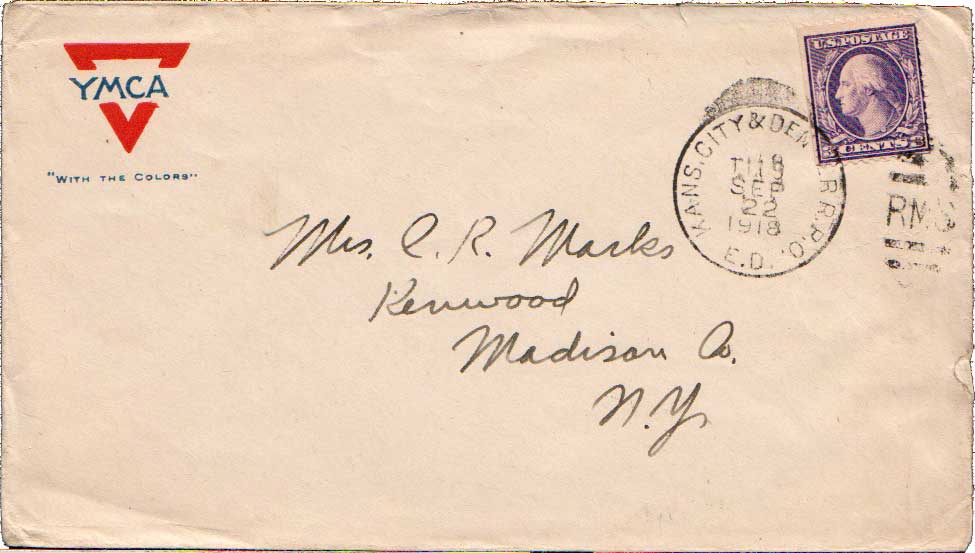 YMCA
"WITH THE COLORS"
U.S. POSTAGE
3 CENTS 3
KANS. CITY & DEN R.P.O.
SEP
22
1918
E.D.
RMS
Mrs. C. R. Marks
Kenwood
Madison Co.
N.Y.